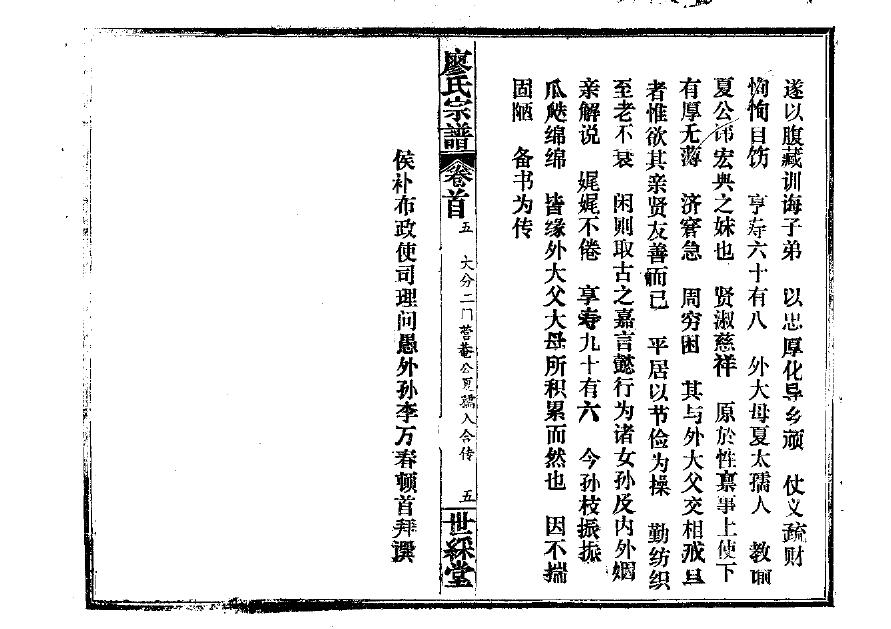 遂以腹藏训诲子弟 以忠厚化导乡顽 仗义疏财
恂恂自饬 享寿六十有八 外大母夏太孺人 教
夏公 宏典之妹也 贤淑慈祥 原於性禀事上使下
有厚无薄 济窘急 周穷困 其与外大父交相戒旦
者惟欲其亲贤友善而已 平居以节俭为操 勤纺织
至老不衰 闲则取古之嘉言懿行为诸女孙及内外姻
亲解说 娓娓不倦 享寿九十有六 今孙枝振振
瓜瓞绵绵 皆缘外大父大母所积累而然也 因不揣
固陋 备书为传
廖氏宗譜 卷首 五 大分二门营菴公夏孺人合传 五 世綵堂
侯补布政使司理问愚外孙李万春顿首拜撰